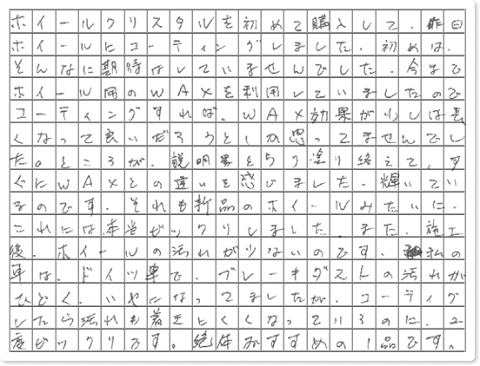 ホイールクリスタルを初めて購入して、昨日
ホイールにコーティングしました。初めは、
そんなに期待はしていませんでした。今まで
ホイール用のWAXを利用していましたので
コーティングすれば、WAX効果が少しは長
くなって良いだろうとしか思ってませんでし
た。ところが、説明書どうり塗り終えて、す
ぐにWAXとの違いを感じました。輝いてい
るのです。それも新品のホイールみたいに、
これには本当ビックリしました。また、施工
後、ホイールの汚れが少ないのです。私の
車は、ドイツ車で、ブレーキダストの汚れが
ひどく、いやになってましたが、コーティグ
したら汚れも着きにくくなっているのに、2
度ビックリです。絶体おすすめの1品です。